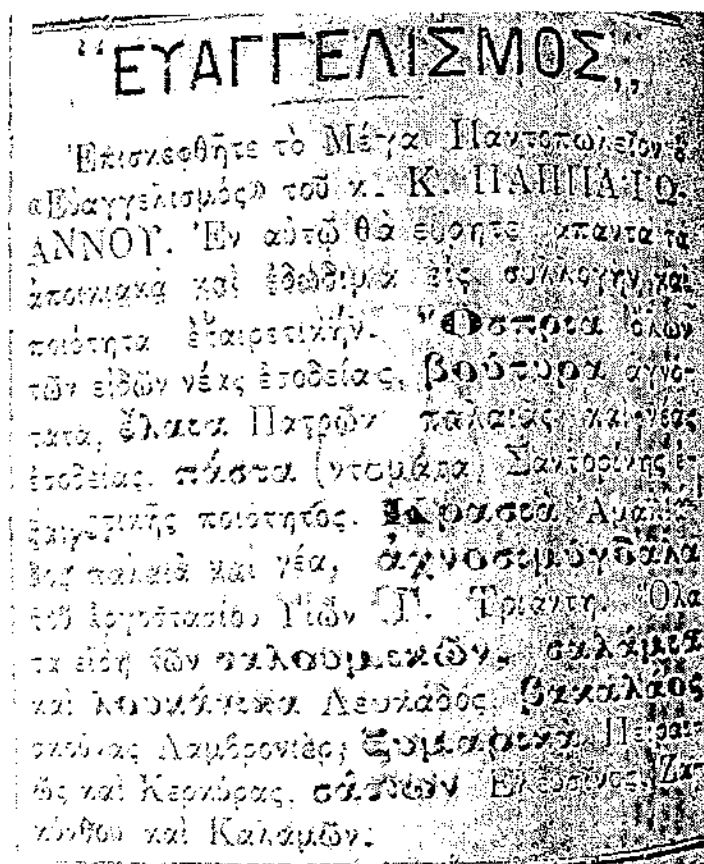 “ΕΥΑΓΓΕΛΙΣΜΟΣ„
Ἐπισκεφθῆτε τὸ Μέγα Παντοπωλεῖον ὁ
«Εὐαγγελισμός» τοῦ κ. Κ. ΠΑΠΠΑ·Ι·Ω-
ΑΝΝΟΥ. Ἐν αὐτῷ θὰ εὕρητε ἅπαντα τὰ
ἀποικιακὰ καὶ ἐδώδιμα εἰς συλλογὴν καὶ
ποιότητα ἐξαιρετικήν. Ὄσπρια ὅλων
τῶν εἰδῶν νέας ἐσοδείας, βούτυρα ἁγνό-
τατα, ἔλαια Πατρῶν παλαιᾶς καὶ νέας
ἐσοδείας, πάστα (ντομάτα) Σαντορίνης ἐ-
ξαιρετικῆς ποιότητος. Κρασιὰ
παλαιὰ καὶ νέα,
τοῦ ἐργοστασίου Υἱῶν Γ. Τριάντη. Ὅλα
τὰ εἴδη τῶν σαλουμικῶν, σαλάμια
καὶ λουκάνικα Λευκάδος, βακαλάος
Λαμβρονιὲρ, ζυμαρικὰ Πειραι-
ῶς καὶ Κερκύρας, σάπων Ἐλευσῖνος, Ζα-
κύνθου καὶ Καλαμῶν.